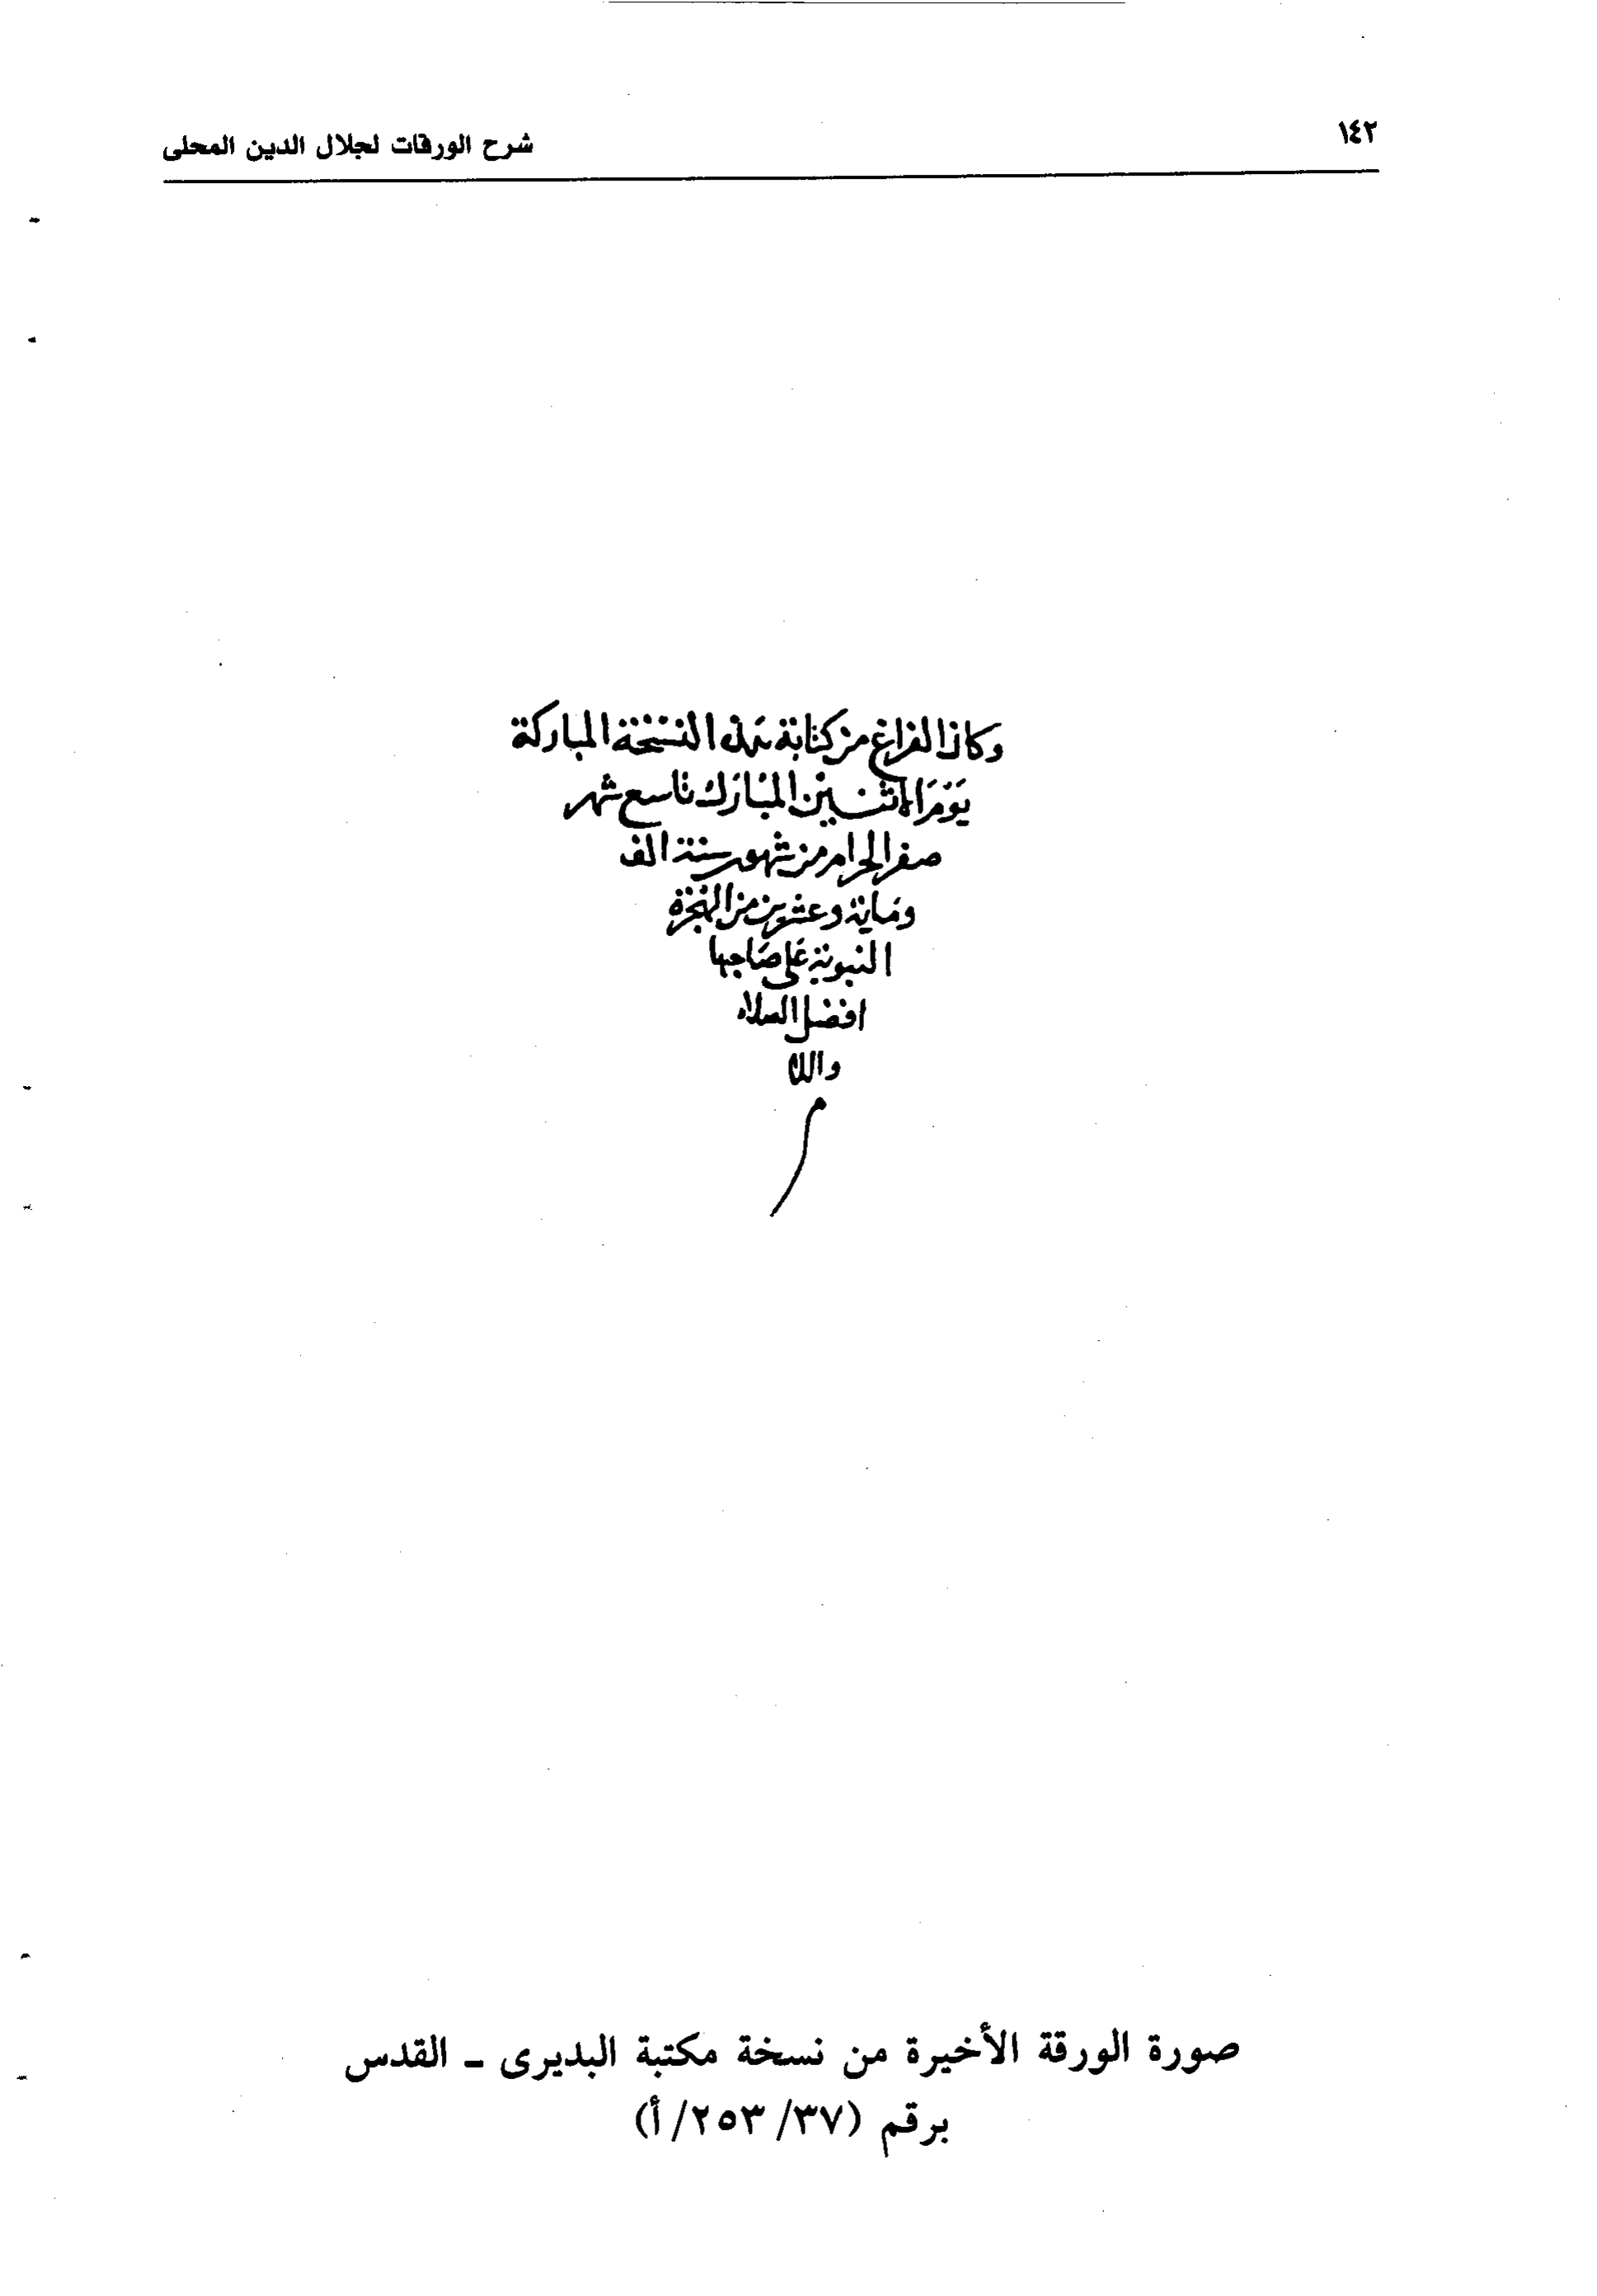 ١٤٢
شرح الورقات لجلال الدين المحلى
وكان الفراغ من كتابة هذه النسخة المباركة
يَوْمَ الاثنين المبَارَك تاسع شهر
صفر الحرام من شهور سنة الف
ومَاية وعشرين من الهجْرة
النبوية عَلى صَاحبها
افضل الصلاه
م
صورة الورقة الأخيرة من نسخة مكتبة البديرى ـ القدس
برقم (٣٧/ ٢٥٣/ أ)